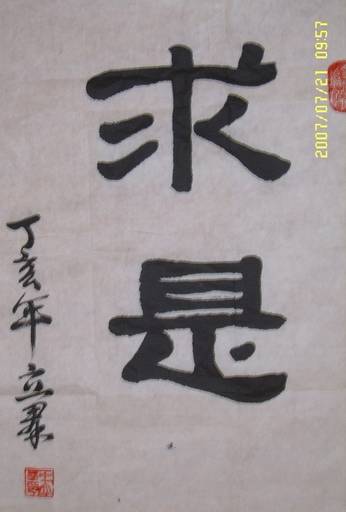 求是
丁亥年立羣
2007/07/21 09:57